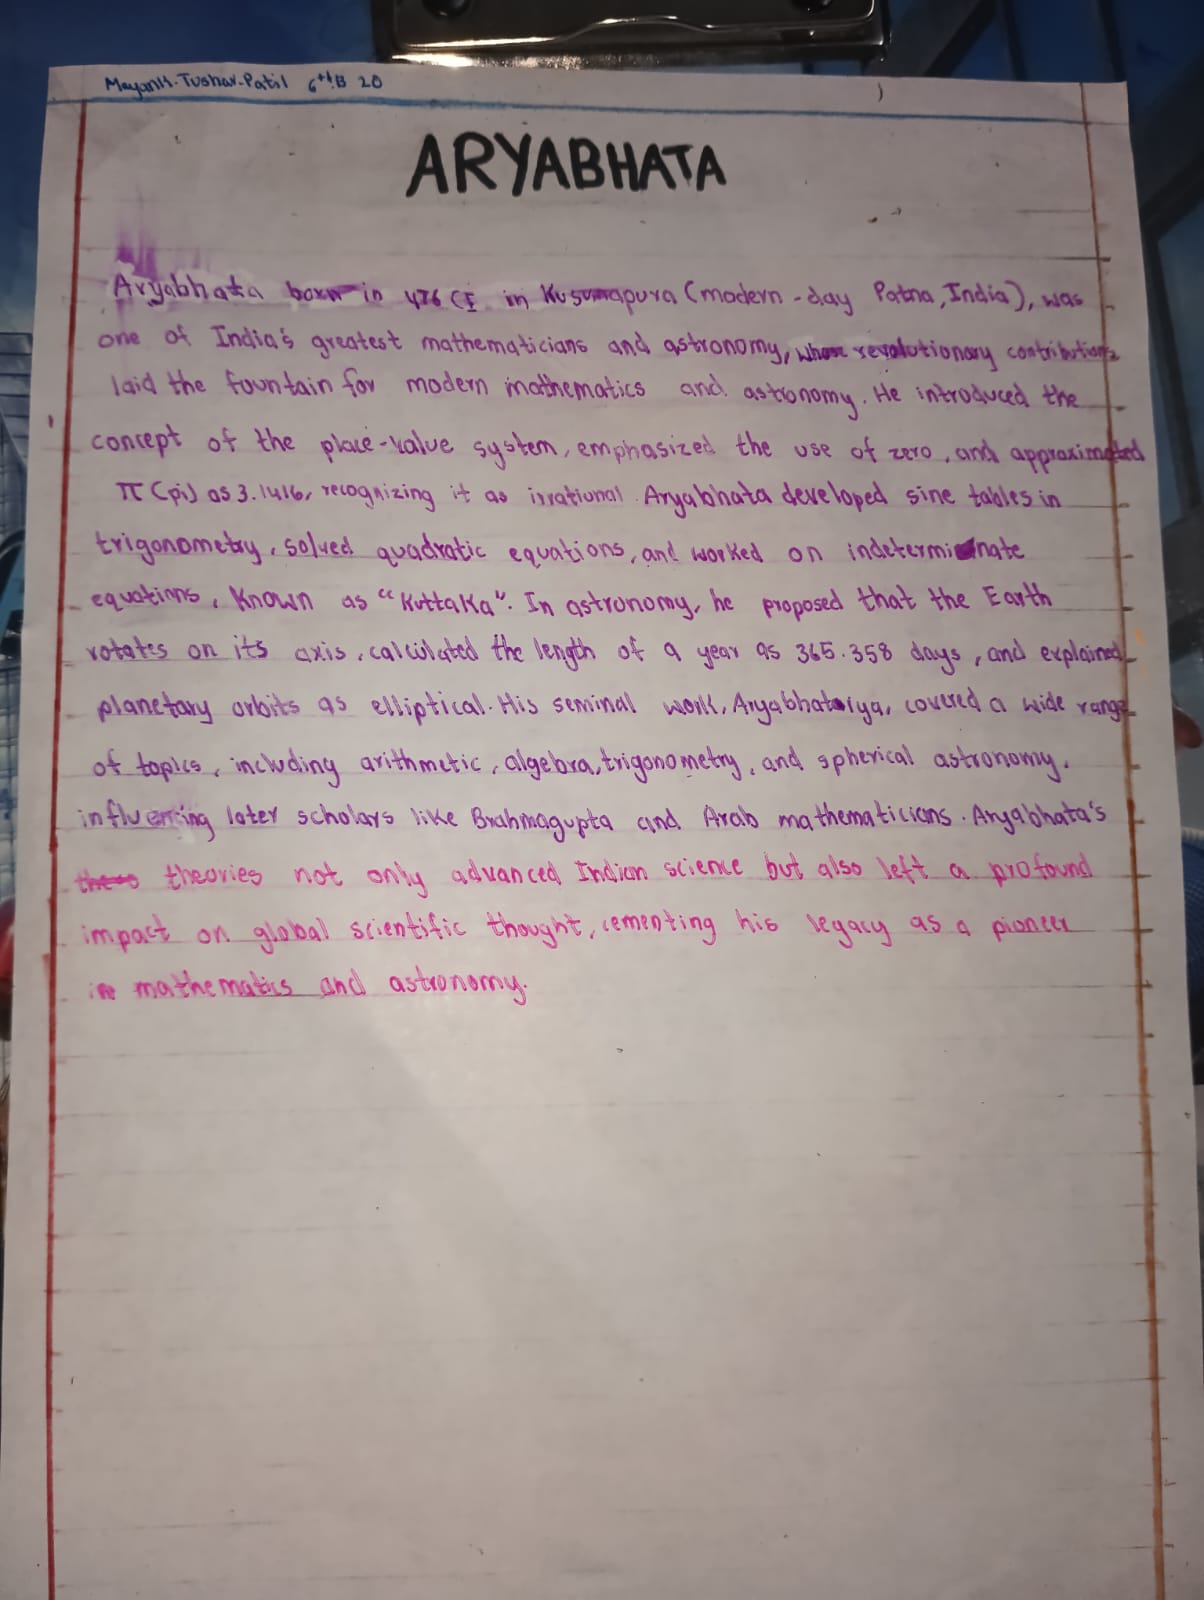 Mayank.Tushar.Patil 6th B 20
ARYABHATA
Aryabhata born in 476 CE in Kusumapura (modern-day Patna, India), was
one of India's greatest mathematicians and astronomy, whose revolutionary contributions
laid the fountain for modern mathematics and astronomy. He introduced the
concept of the place-value system, emphasized the use of zero, and approximated
π (pi) as 3.1416, recognizing it as irrational. Aryabhata developed sine tables in
trigonometry, solved quadratic equations, and worked on indeterminate
equations, known as "Kuttaka". In astronomy, he proposed that the Earth
rotates on its axis, calculated the length of a year as 365.358 days, and explained
planetary orbits as elliptical. His seminal work, Aryabhatiya, covered a wide range
of topics, including arithmetic, algebra, trigonometry, and spherical astronomy.
influencing later scholars like Brahmagupta and Arab mathematicians. Aryabhata's
theories not only advanced Indian science but also left a profound
impact on global scientific thought, cementing his legacy as a pioneer
in mathematics and astronomy.